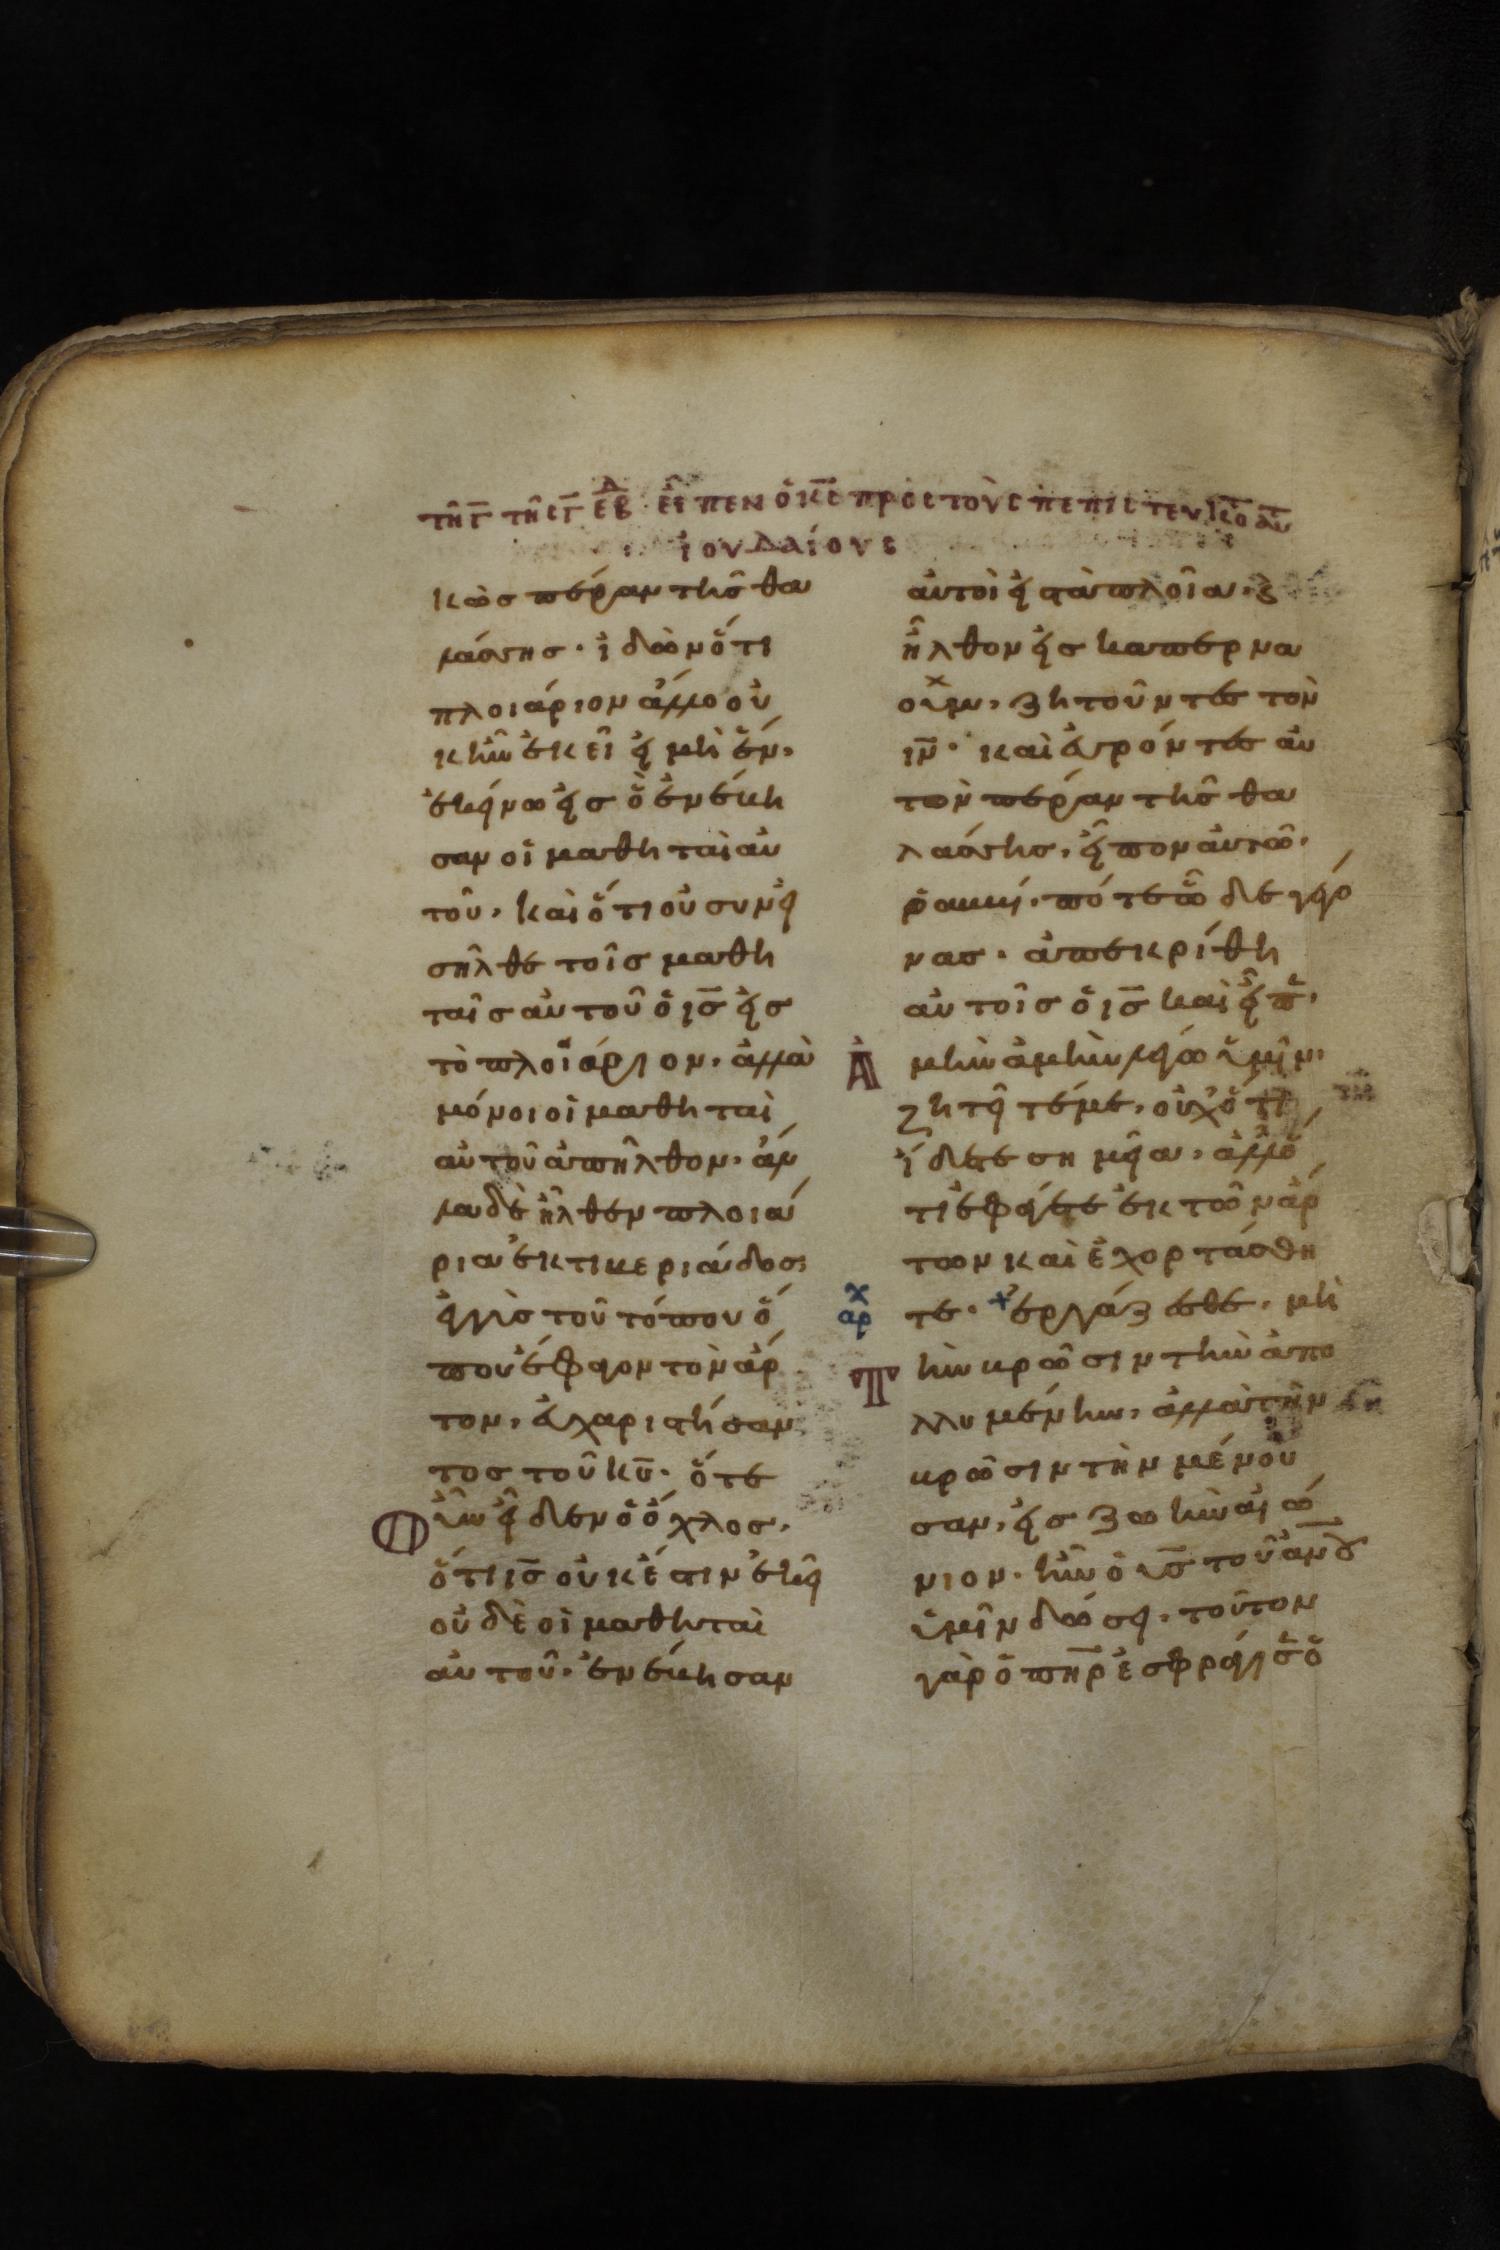 τῆ γ̅ τῆς γ̅ ἑβδ εἶπεν ὁ κ̅ς̅ πρὸς τοὺς πεπιστευκο αυτ
ἰουδαίους
κὼς πέραν τῆς θα
λάσσης· ἰδὼν ὅτι
πλοιάριον ἄλλο οὐ
κ ἦν ἐκεῖ εἰ μὴ ἕν,
ἐκείνω εἰς ὃ ἐνέβη
σαν οἱ μαθηταὶ αὐ
τοῦ, καὶ ὅτι οὐ συνει
σῆλθε τοῖς μαθη
ταῖς αὐτοῦ ὁ ι̅ς̅ εἰς
τὸ πλοιάριον, ἀλλὰ
μόνοι οἱ μαθηταὶ
αὐτοῦ ἀπῆλθον· ἄλ
λα δὲ ἦλθεν πλοιά
ρια ἐκ τιβεριάδος
ἐγγὺς τοῦ τόπου ὅ
που ἔφαγον τὸν ἄρ
τον, εὐχαριστήσαν
τος τοῦ κ̅υ̅· ὅτε
Ο ὖν εἶδεν ὁ ὄχλος,
ὅτι ι̅ς̅ οὐκ ἔστιν ἐκεῖ
οὐδὲ οἱ μαθηταὶ
αὐτοῦ· ἐνέβησαν
αὐτοὶ εἰς τὰ πλοῖα, καὶ
ἦλθον εἰς καπερνα
οὺμ, ζητοῦντες τὸν
ι̅ν̅· καὶ εὑρόντες αὐ
τὸν πέραν τῆς θα
λάσσης, εἶπον αὐτῶ·
ῥαββί, πότε ὧδε γέγο
νας· ἀπεκρίθη
αὐτοῖς ὁ ι̅ς̅ καὶ εἶπε,
Ἀ μὴν ἀμὴν λέγω ὑμῖν,
ζητεῖτέ με, οὐχ ὅτι
ἴδετε σημεῖα, ἀλλ ὅ
τι ἐφάγετε ἐκ τῶν ἄρ
των καὶ ἐχορτάσθη
χ
αρ τε· + ἐργάζεσθε, μὴ
Τ ὴν βρῶσιν τὴν ἀπο
λλυμένην, ἀλλὰ τὴν
βρῶσιν τὴν μένου
σαν, εἰς ζωὴν αἰώ
νιον· ἣν ὁ υ̅ς̅ τοῦ ἀν̅ου̅
ὑμῖν δώσει, τοῦτον
γὰρ ὁ πη̅ρ̅ ἐσφράγισεν ὁ